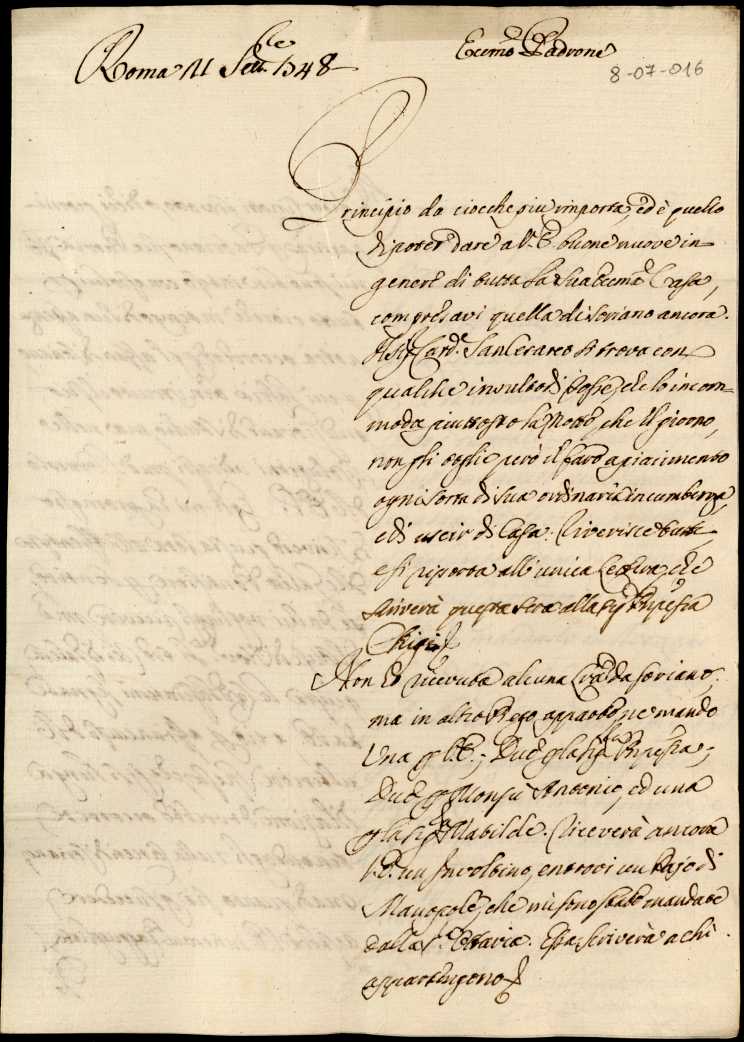 Roma 11 Sett.bre 1748
Ecc.mo Padrone
8-07-016
Principio da ciocche più importa, ed è quello
di poter dare a V. E. buone nuove in
genere di tutta la sua Ecc.ma Casa,
compresavi quella di Soriano ancora.
Il Sig.r Card.le San Cesareo si trova con
qualche insulto di Tosse, che lo incom-
moda piuttosto la Notte, che il giorno,
non gli toglie però il fare a piacimento
ogni sorta di sua ordinaria incumbenza,
e di uscir di Casa. Riverisce tutti
e si riporta all'unica Lettera, che
scriverà questa sera alla Sig.ra Pnpessa
Chigi
Non ho ricevuta alcuna l'ra da Soriano,
ma in altro Piego apparto ne mando
Una p V. E.; Due p la Sig.ra Pnpessa;
Due p Monsù Antonio, ed una
p la Sig.ra Matilde. Riceverà ancora
V. E. un Involtino, entrovi un Pajo di
Manopole, che mi sono state mandate
dalla S.ra Ottavia. Essa scriverà a chi
appartengono